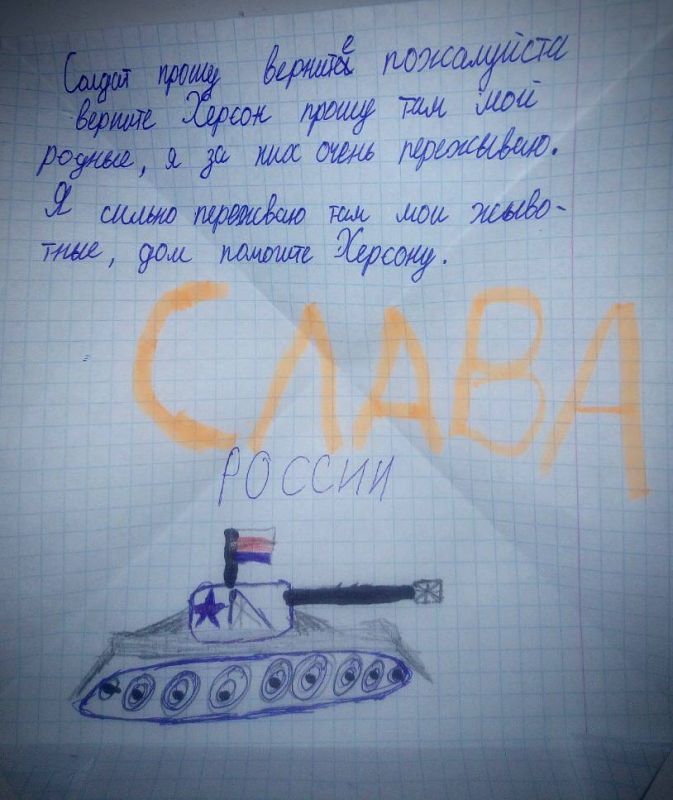 Солдат прошу верните пожалуйста
верните Херсон прошу там мои
родные, я за них очень пережываю.
Я сильно переживаю там мои жыво-
тные, дом помогите Херсону.
СЛАВА
РОССИИ